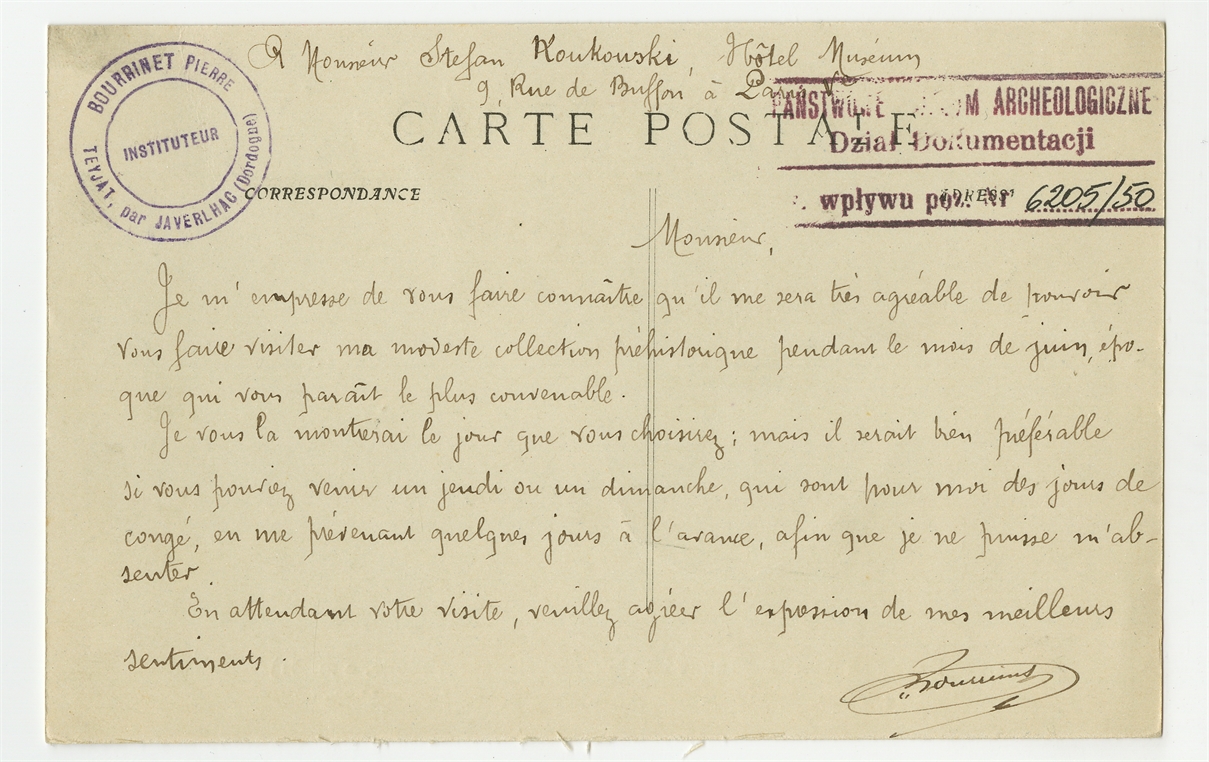 A Monsieur Stefan Koukowski, Hôtel Muséum
9, Rue de Buffon à Paris V
BOURRINET PIERRE
INSTITUTEUR
TEYJAT, par JAVERLHAC (Dordogne)
PAŃSTWOWE ARCHEOLOGICZNE
Dział Dokumentacji
wpływu poz. Nr 6205/50
CARTE POSTALE
CORRESPONDANCE
ADRESSE
Monsieur,
Je m'empresse de vous faire connaître qu'il me sera très agréable de pouvoir
vous faire visiter ma modeste collection préhistorique pendant le mois de juin, épo-
que qui vous paraît le plus convenable.
Je vous la montrerai le jour que vous choisirez ; mais il serait bien préférable
si vous pouviez venir un jeudi ou un dimanche, qui sont pour moi des jours de
congé, en me prévenant quelques jours à l'avance, afin que je ne puisse m'ab-
senter.
En attendant votre visite, veuillez agréer l'expression de mes meilleurs
sentiments.
Bourrinet